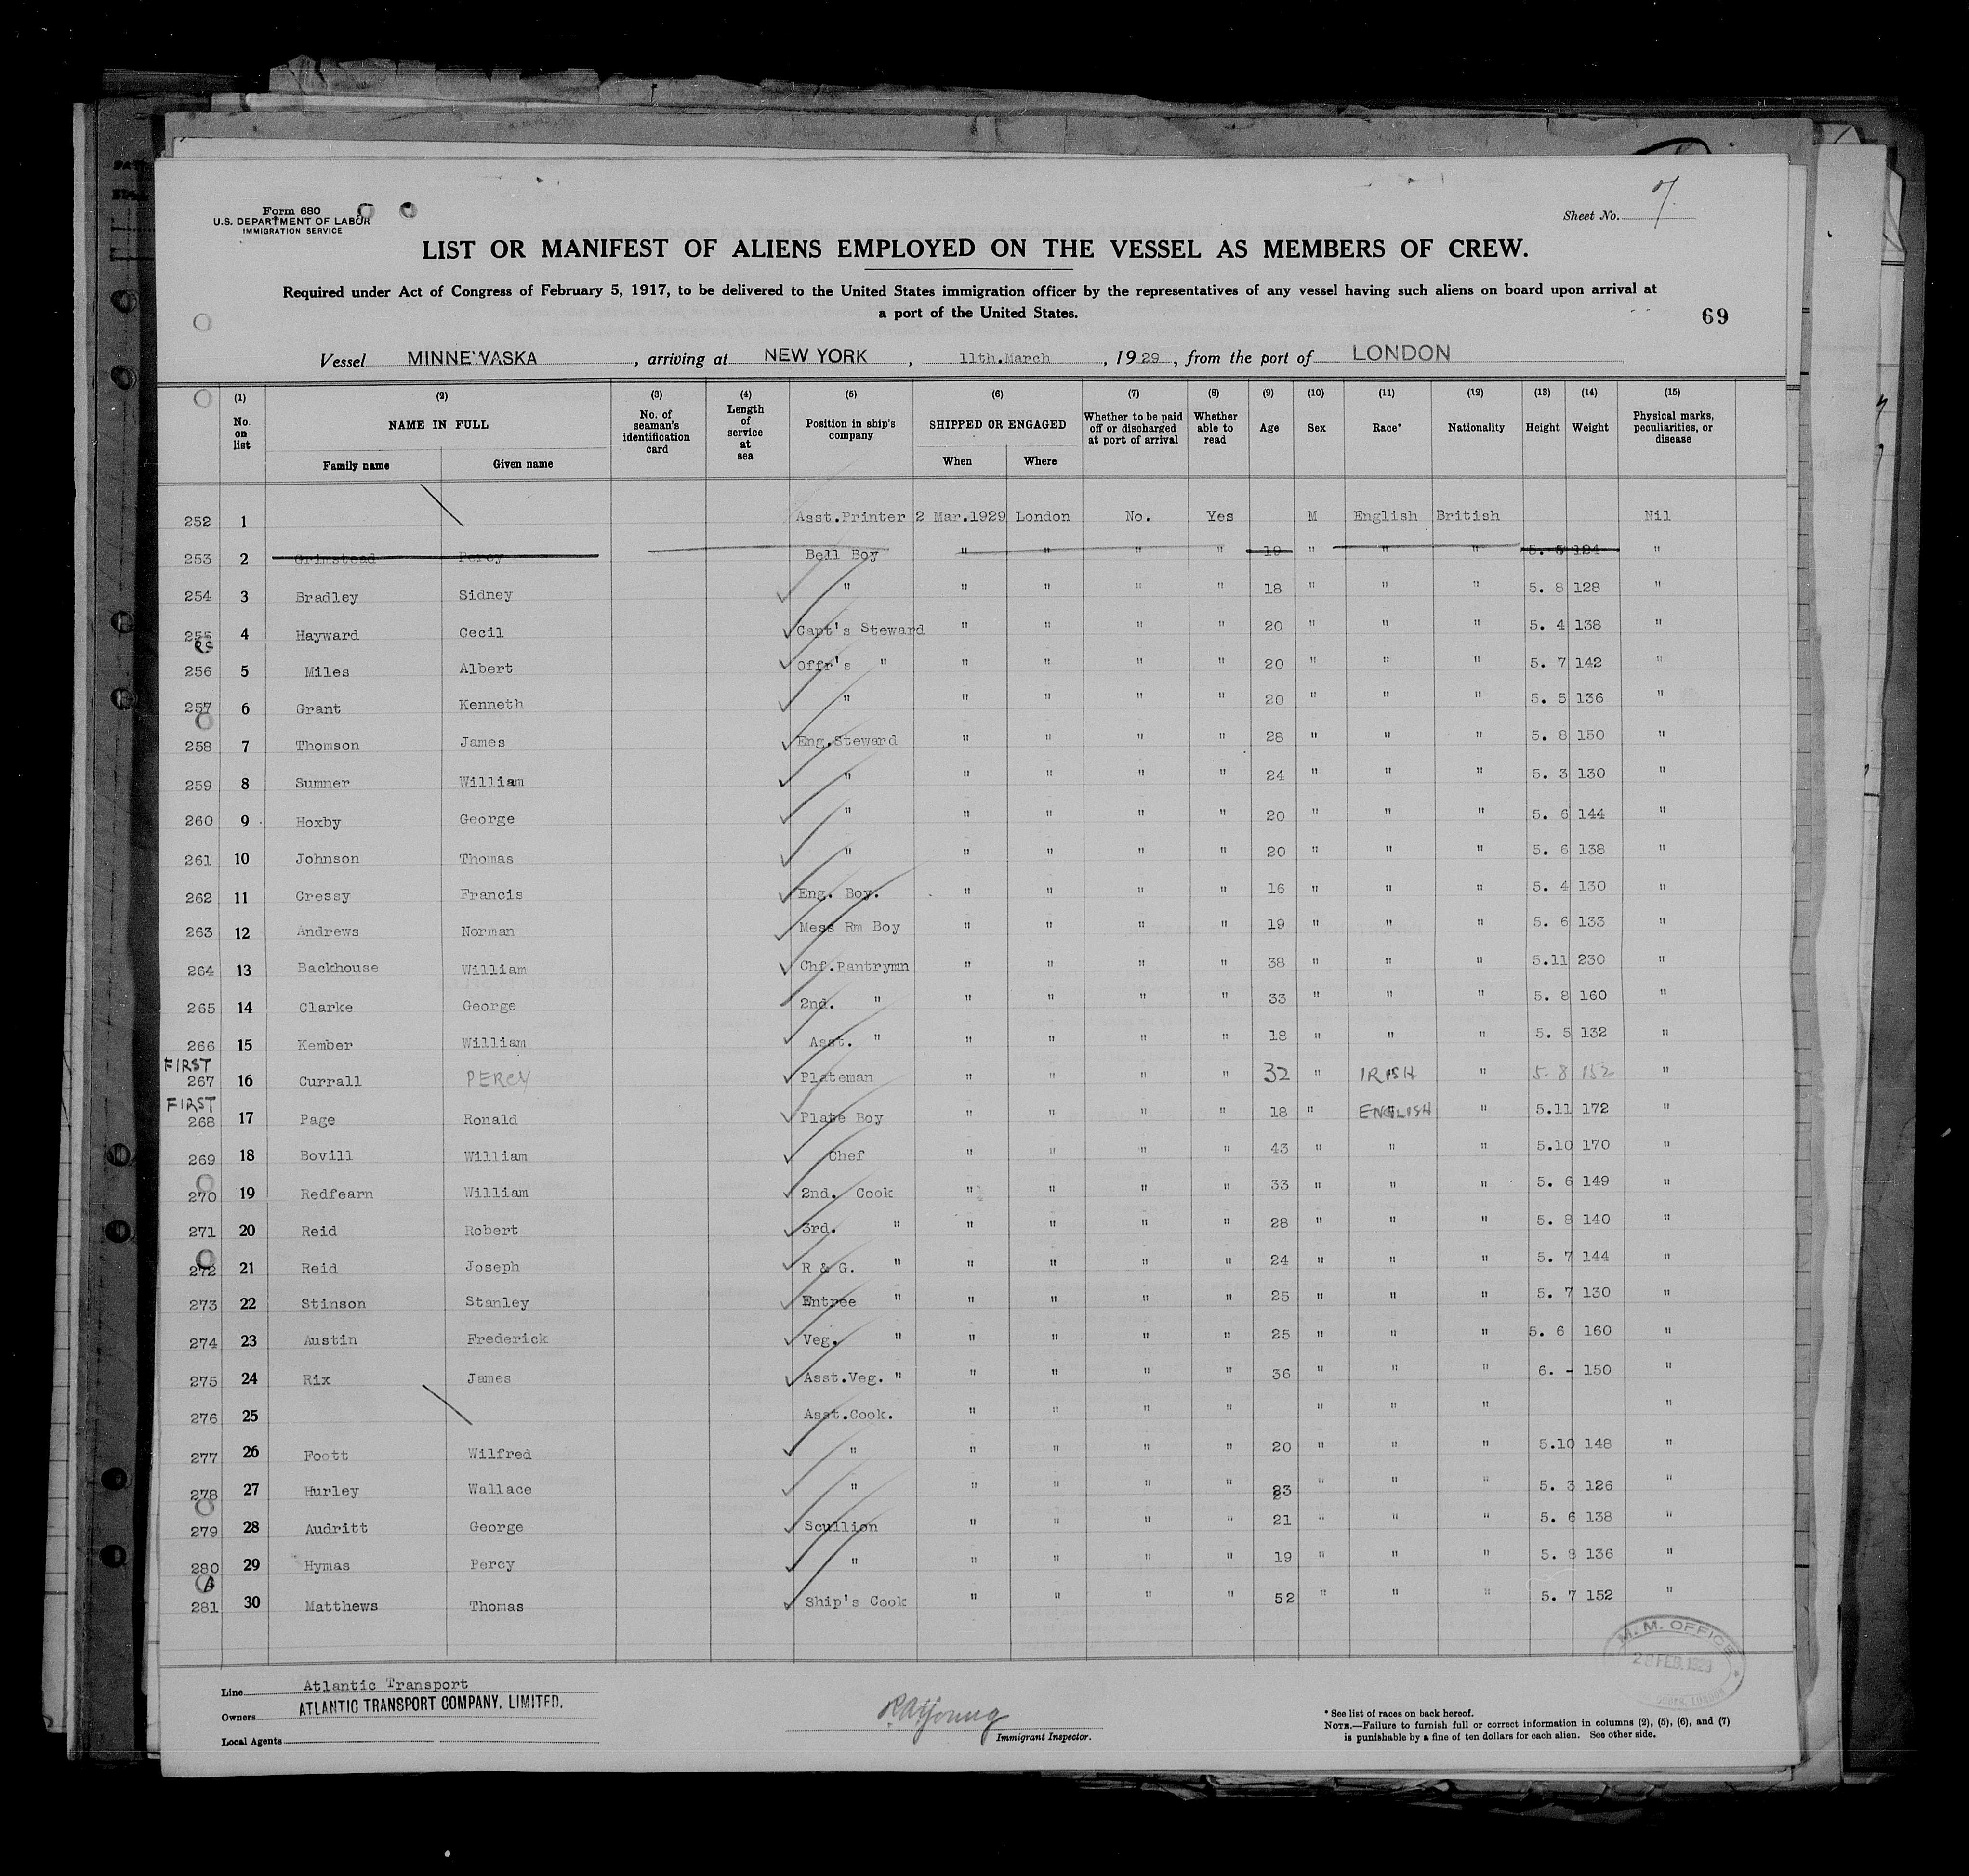 Form 680
U.S. DEPARTMENT OF LABOR
IMMIGRATION SERVICE
Sheet No. 7.
LIST OR MANIFEST OF ALIENS EMPLOYED ON THE VESSEL AS MEMBERS OF CREW.
Required under Act of Congress of February 5, 1917, to be delivered to the United States immigration officer by the representatives of any vessel having such aliens on board upon arrival at
a port of the United States.
69
Vessel MINNEWASKA, arriving at NEW YORK, 11th.March, 1929, from the port of LONDON
(1) (2) (3) (4) (5) (6) (7) (8) (9) (10) (11) (12) (13) (14) (15)
No. on list NAME IN FULL No. of seaman's identification card Length of service at sea Position in ship's company SHIPPED OR ENGAGED Whether to be paid off or discharged at port of arrival Whether able to read Age Sex Race* Nationality Height Weight Physical marks, peculiarities, or disease
Family name Given name When Where
252 1 Asst.Printer 2 Mar.1929 London No. Yes M English British Nil
253 2 Grimstead Percy Bell Boy " " " " 19 " " " 5. 6 124 "
254 3 Bradley Sidney " " " " " 18 " " " 5. 8 128 "
255 4 Hayward Cecil Capt's Steward " " " " 20 " " " 5. 4 138 "
256 5 Miles Albert Offr's " " " " " 20 " " " 5. 7 142 "
257 6 Grant Kenneth " " " " " 20 " " " 5. 5 136 "
258 7 Thomson James Eng.Steward " " " " 28 " " " 5. 8 150 "
259 8 Sumner William " " " " " 24 " " " 5. 3 130 "
260 9 Hoxby George " " " " " 20 " " " 5. 6 144 "
261 10 Johnson Thomas " " " " " 20 " " " 5. 6 138 "
262 11 Cressy Francis Eng. Boy. " " " " 16 " " " 5. 4 130 "
263 12 Andrews Norman Mess Rm Boy " " " " 19 " " " 5. 6 133 "
264 13 Backhouse William Chf.Pantrymn " " " " 38 " " " 5.11 230 "
265 14 Clarke George 2nd. " " " " " 33 " " " 5. 8 160 "
266 15 Kember William Asst. " " " " " 18 " " " 5. 5 132 "
FIRST
267 16 Currall PERCY Plateman " " " " 32 " IRISH " 5. 8 152 "
FIRST
268 17 Page Ronald Plate Boy " " " " 18 " ENGLISH " 5.11 172 "
269 18 Bovill William Chef " " " " 43 " " " 5.10 170 "
270 19 Redfearn William 2nd. Cook " " " " 33 " " " 5. 6 149 "
271 20 Reid Robert 3rd. " " " " " 28 " " " 5. 8 140 "
272 21 Reid Joseph R & G. " " " " " 24 " " " 5. 7 144 "
273 22 Stinson Stanley Entree " " " " " 25 " " " 5. 7 130 "
274 23 Austin Frederick Veg. " " " " " 25 " " " 5. 6 160 "
275 24 Rix James Asst.Veg. " " " " " 36 " " " 6. - 150 "
276 25 Asst.Cook. " " " " " " " "
277 26 Foott Wilfred " " " " " 20 " " " 5.10 148 "
278 27 Hurley Wallace " " " " " 23 " " " 5. 3 126 "
279 28 Audritt George Scullion " " " " 21 " " " 5. 6 138 "
280 29 Hymas Percy " " " " " 19 " " " 5. 136 "
281 30 Matthews Thomas Ship's Cook " " " " 52 " " " 5. 7 152 "
M. M. OFFICE
28 FEB. 1929
LONDON
Line Atlantic Transport
Owners ATLANTIC TRANSPORT COMPANY, LIMITED.
Local Agents
Immigrant Inspector.
* See list of races on back hereof.
NOTE.—Failure to furnish full or correct information in columns (2), (5), (6), and (7)
is punishable by a fine of ten dollars for each alien. See other side.